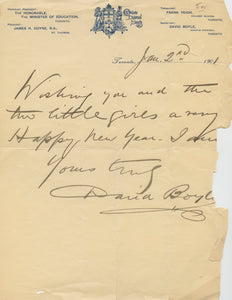 HONORARY PRESIDENT:
THE HONORABLE,
THE MINISTER OF EDUCATION,
TORONTO.
PRESIDENT:
JAMES H. COYNE, B.A.,
ST. THOMAS.
Ontario
Historical
Society
TREASURER:
FRANK YEIGH,
TORONTO.
SECRETARY:
DAVID BOYLE,
TORONTO.
Toronto, Jan. 2nd 1901
Wishing you and the
two little girls a very
Happy New Year. I am
Yours truly
David Boyle